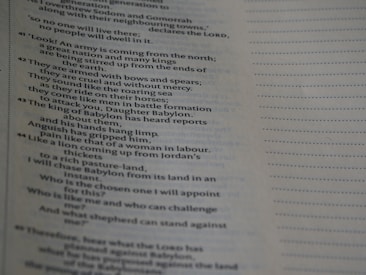 generation to
generation
I overthrew Sodom and Gomorrah
along with their neighbouring towns,'
declares the LORD,
'so no one will live there;
no people will dwell in it.
41 'Look! An army is coming from the north;
a great nation and many kings
are being stirred up from the ends of
the earth.
42 They are armed with bows and spears;
they are cruel and without mercy.
They sound like the roaring sea
as they ride on their horses;
they come like men in battle formation
to attack you, Daughter Babylon.
43 The king of Babylon has heard reports
about them,
and his hands hang limp.
Anguish has gripped him,
pain like that of a woman in labour.
44 Like a lion coming up from Jordan's
thickets
to a rich pasture-land,
I will chase Babylon from its land in an
instant.
Who is the chosen one I will appoint
for this?
Who is like me and who can challenge
me?
And what shepherd can stand against
me?'
45 Therefore, hear what the LORD has
planned against Babylon,
what he has purposed against the land
of the Babylonians
the young of the